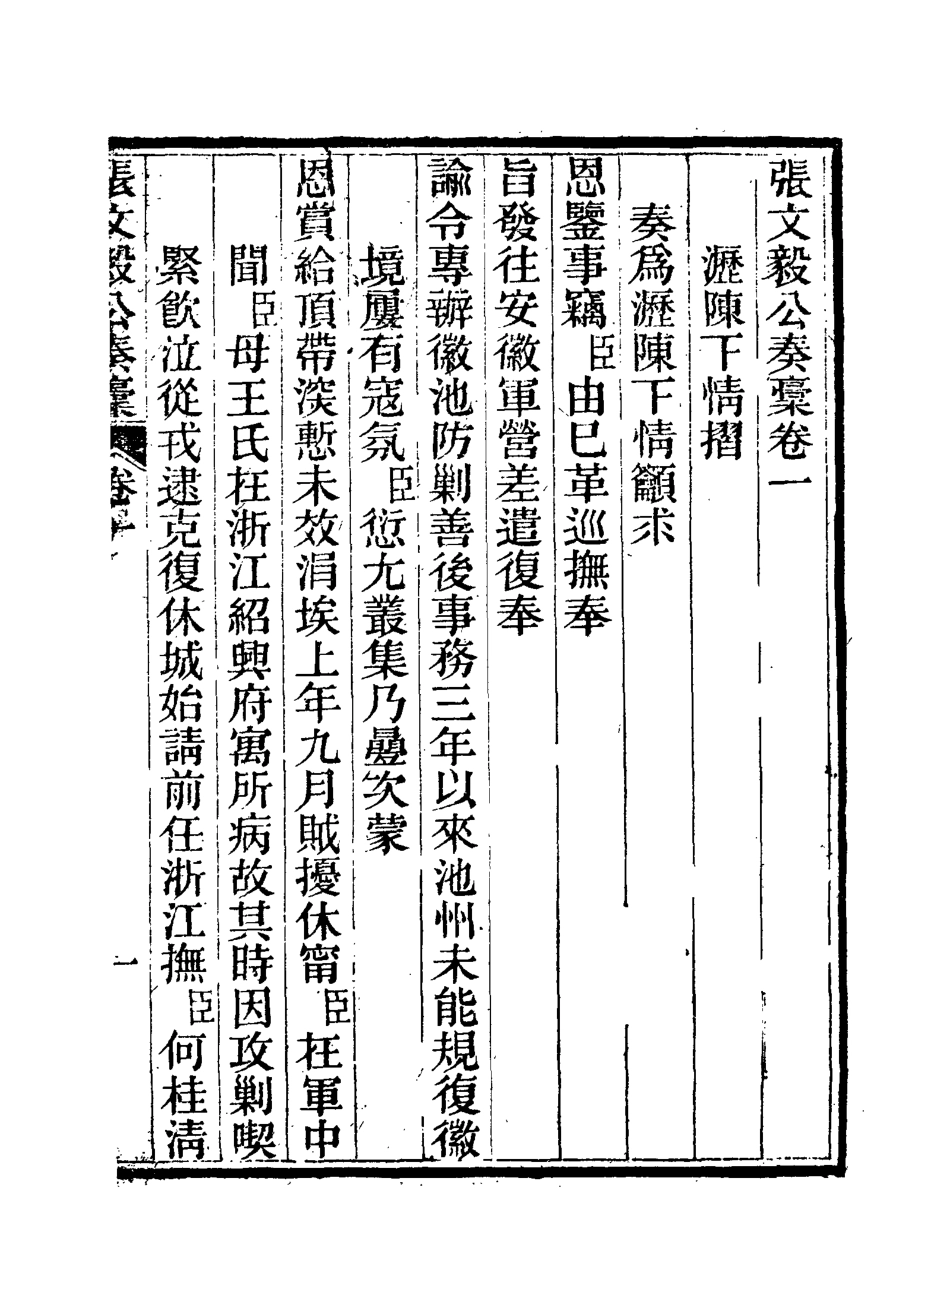 張文毅公奏稾卷一
瀝陳下情摺
奏爲瀝陳下情籲求
恩鑒事竊臣由已革巡撫奉
旨發往安徽軍營差遣復奉
諭令專辦徽池防剿善後事務三年以來池州未能規復徽
境屢有寇氛臣愆尤叢集乃疊次蒙
恩賞給頂帶深慙未效涓埃上年九月賊擾休甯臣在軍中
聞臣母王氏在浙江紹興府寓所病故其時因攻剿喫
緊飮泣從戎逮克復休城始請前任浙江撫臣何桂淸
張文毅公奏稾 卷一 一